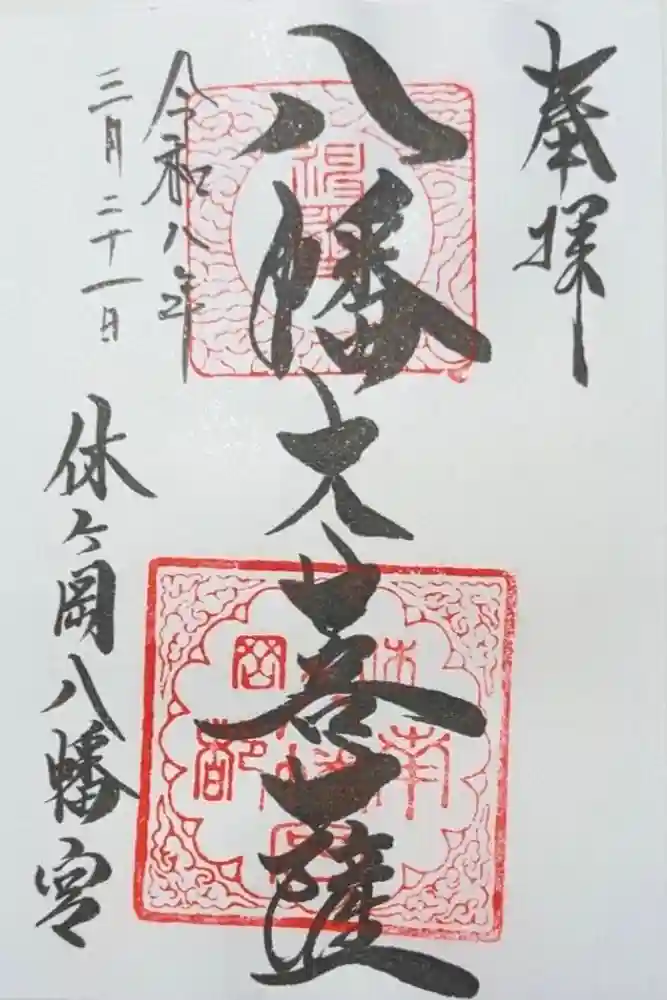 奉拝
八幡大菩薩
令和八年
三月二十一日
休ヶ岡八幡宮
南都